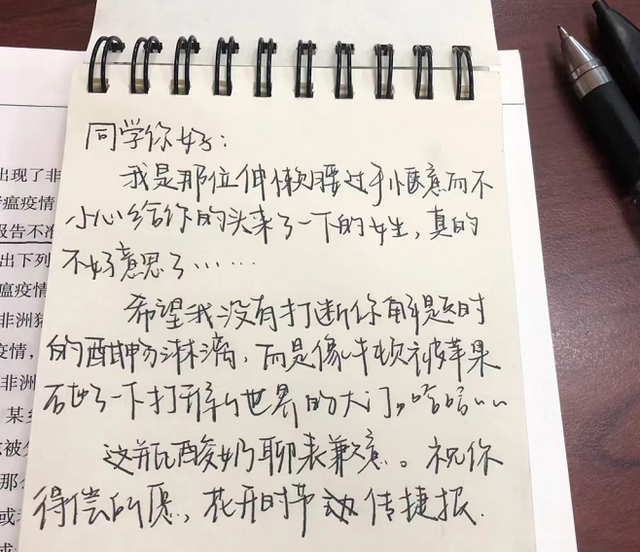 同学你好：
我是那位伸懒腰过于惬意而不
小心给你的头来了一下的女生，真的
不好意思了……
希望我没有打断你解题时
的酣畅淋漓，而是像牛顿被苹果
砸了一下打开新世界的大门。哈哈……
这瓶酸奶聊表歉意。祝你
得偿所愿，花开时节 传捷报.
出现了非
瘟疫情
报告不准
出下列
瘟疫情
非洲猪
疫情，
非洲
某乡
被
那么
或
或者